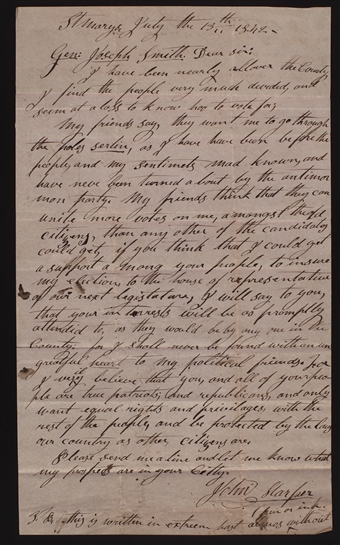 St Marys July the 13th 1842.
Gen: Joseph Smith. Dear sir:
I have been nearly all over the County
I find the people very much decided, and
seem at a loss to know ho to vote for,
My friends say, they want me to go, through
the poles sertin, as I have have been before the
people, and my sentimets mad known, and
have never been turned about by the antimor
mon party. My friends think that they can
unite more votes on me, amongst the old
citizens, than any other of the candidates
could get, if you think that I could get
a support a mong your people, to insure
my election, to the house of representative
of our next legislature, I will say to you,
that your in terests will be as promptly
attended to, as they would be by any one in the
County. for I shall never be found with an un
grateful heart to my political friends. for
I verily believe that you, and all of your peo
ple are true patriots, and republicans, and only
want equal rights and privileges with the
rest of the people, and be protected by the laws
our country as other citizens are.
Please send me a line and let me know what
my prospects are in your City.
John Harper
P.S. this is written in extreem hast almos without
pen or ink.